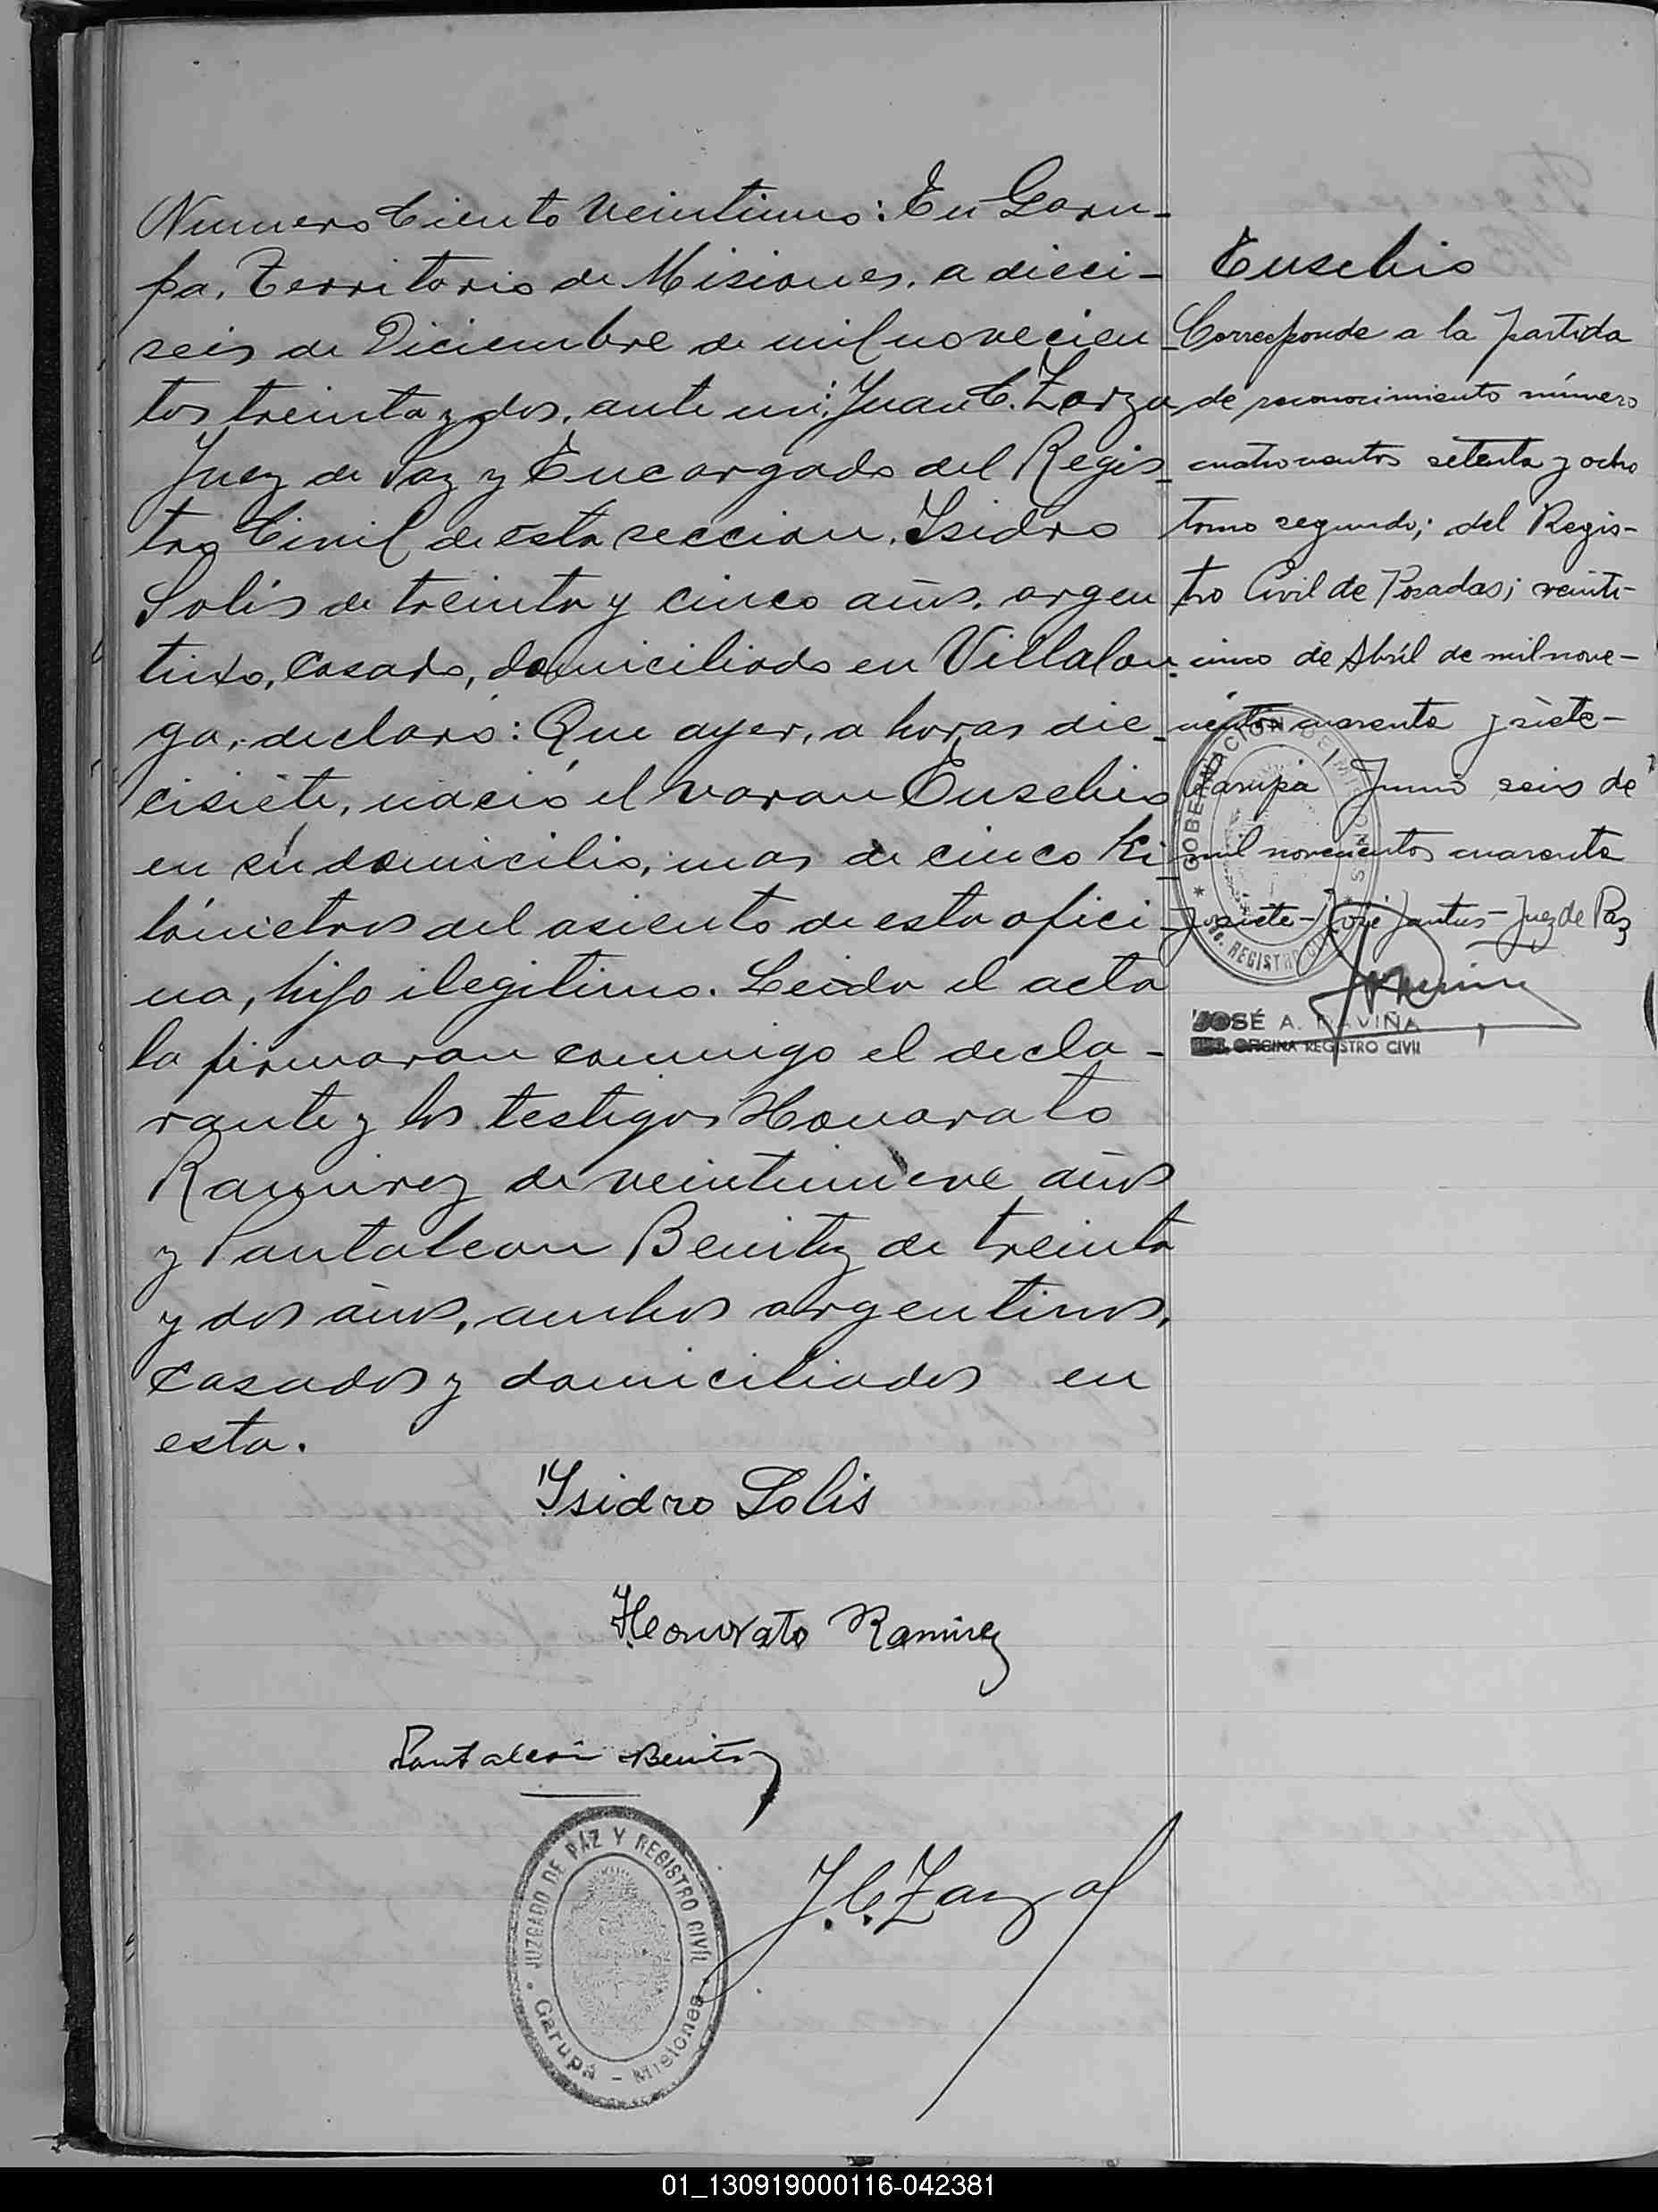 Numero Ciento Veintiuno: En Garu-
pa, Territorio de Misiones, a dieci-
seis de Diciembre de mil novecien-
tos treinta y dos, ante mi: Juan C. Zarza
Juez de Paz y Encargado del Regis-
tro Civil de esta seccion, Isidro
Solis de treinta y cinco años, argen
tino, casado, domiciliado en Villalon-
ga, declaro: Que ayer, a horas die-
cisiete, nació el varon Eusebio
en su domicilio, mas de cinco ki-
lómetros del asiento de esta ofici-
na, hijo ilegitimo. Leida el acta
la firmaran conmigo el decla-
rante y los testigos Honorato
Ramirez de veintinueve años
y Pantaleon Benitez de treinta
y dos años, ambos argentinos,
casados y domiciliados en
esta.
Isidro Solis
Honorato Ramirez
Pantaleon Benitez
J. C. Zarza
JUZGADO DE PAZ Y REGISTRO CIVIL
Garupá - Misiones
Eusebio
Corresponde a la partida
de reconocimiento número
cuatrocientos setenta y ocho
tomo segundo; del Regis-
tro Civil de Posadas; veinti-
cinco de Abril de mil nove-
cientos cuarenta y siete-
Garupá Junio seis de
mil novecientos cuarenta
y siete- José - Juez de Paz
GOBERNACION DE MISIONES
REGISTRO
JOSÉ A. DAVIÑA
OFICINA REGISTRO CIVIL
01_130919000116-042381